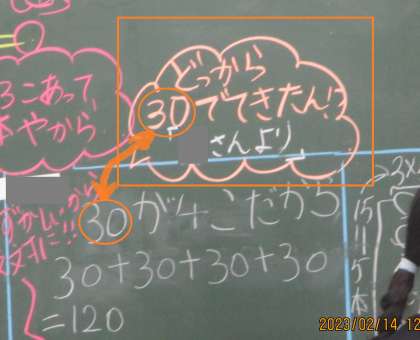 どっから
30でてきたん!?
さんより
ろこあって
本やから
30が4こだから
30+30+30+30
=120
15
5
本
2023/02/14 12